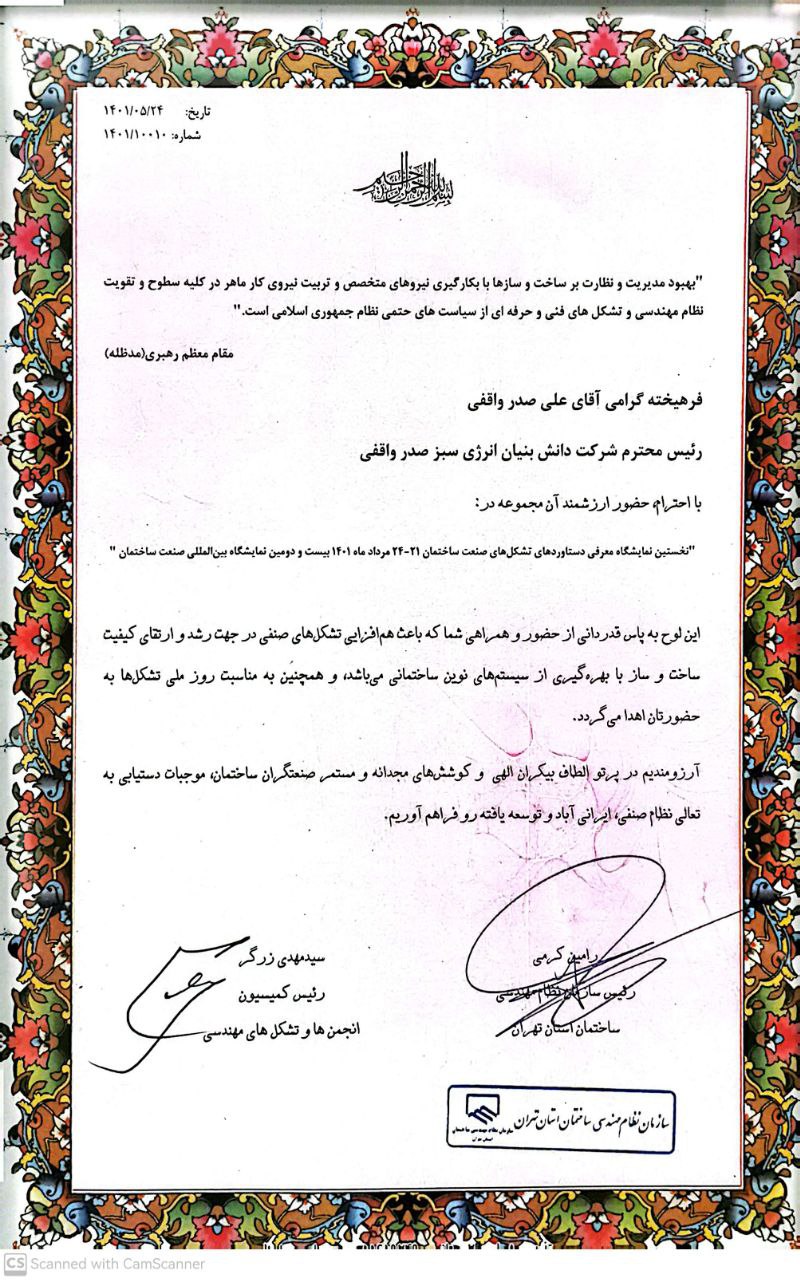 تاریخ: ۱۴۰۱/۰۵/۲۴
شماره: ۱۴۰۱/۱۰۰۱۰
بسم الله الرحمن الرحیم
"بهبود مدیریت و نظارت بر ساخت و سازها با بکارگیری نیروهای متخصص و تربیت نیروی کار ماهر در کلیه سطوح و تقویت
نظام مهندسی و تشکل های فنی و حرفه ای از سیاست های حتمی نظام جمهوری اسلامی است."
مقام معظم رهبری(مدظله)
فرهیخته گرامی آقای علی صدر واقفی
رئیس محترم شرکت دانش بنیان انرژی سبز صدر واقفی
با احترام، حضور ارزشمند آن مجموعه در:
"نخستین نمایشگاه معرفی دستاوردهای تشکل‌های صنعت ساختمان ۲۱-۲۴ مرداد ماه ۱۴۰۱ بیست و دومین نمایشگاه بین‌المللی صنعت ساختمان "
این لوح به پاس قدردانی از حضور و همراهی شما که باعث هم‌افزایی تشکل‌های صنفی در جهت رشد و ارتقای کیفیت
ساخت و ساز با بهره‌گیری از سیستم‌های نوین ساختمانی می‌باشد، و همچنین به مناسبت روز ملی تشکل‌ها به
حضورتان اهدا می‌گردد.
آرزومندیم در پرتو الطاف بیکران الهی و کوشش‌های مجدانه و مستمر صنعتگران ساختمان، موجبات دستیابی به
تعالی نظام صنفی، ایرانی آباد و توسعه یافته رو فراهم آوریم.
رامین کرمی
رئیس سازمان نظام مهندسی
ساختمان استان تهران
سیدمهدی زرگر
رئیس کمیسیون
انجمن ها و تشکل های مهندسی
سازمان نظام مهندسی ساختمان استان تهران
سازمان نظام مهندسی ساختمان
استان تهران
CS Scanned with CamScanner